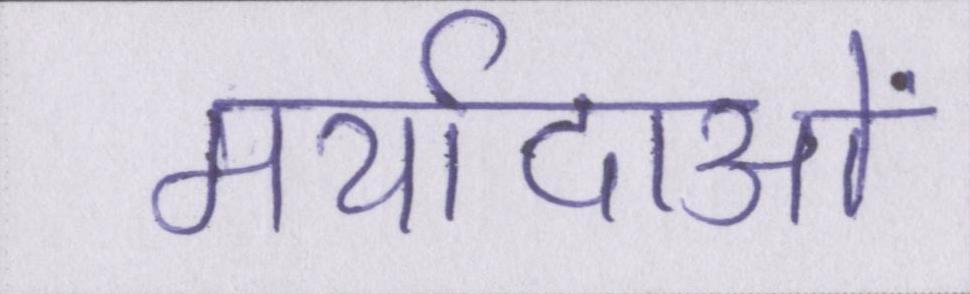 मर्यादाओं